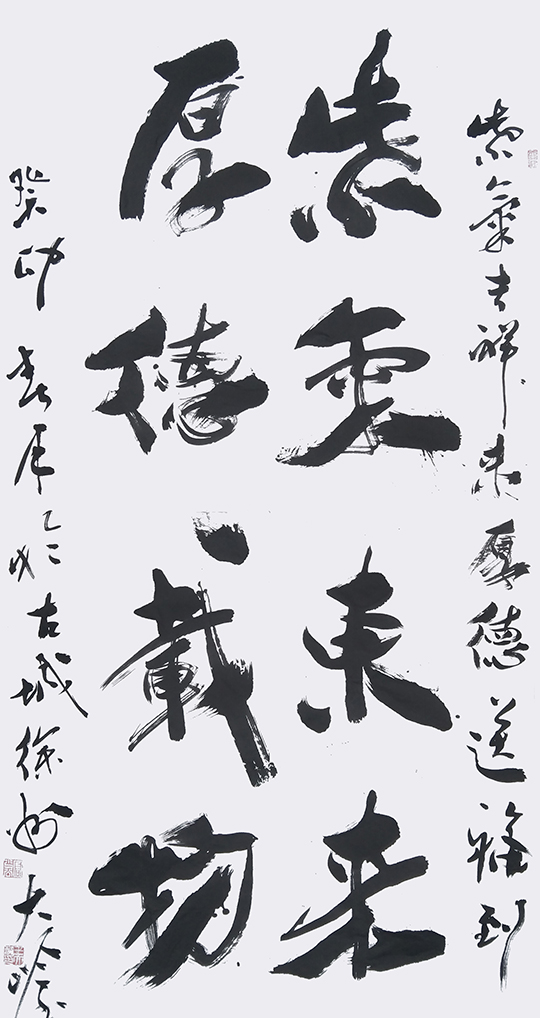 紫气吉祥来厚德送福到
紫气东来
厚德载物
癸卯春月於古城徐州大